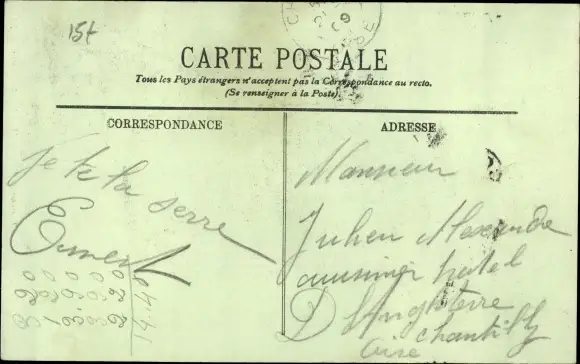 15f
CARTE POSTALE
Tous les Pays étrangers n'acceptent pas la Correspondance au recto.
(Se renseigner à la Poste).
CORRESPONDANCE
Je te la serre
Ernest
ADRESSE
Monsieur
Julien Alexandre
cuisinier hotel
D'Angleterre
Chantilly
Oise